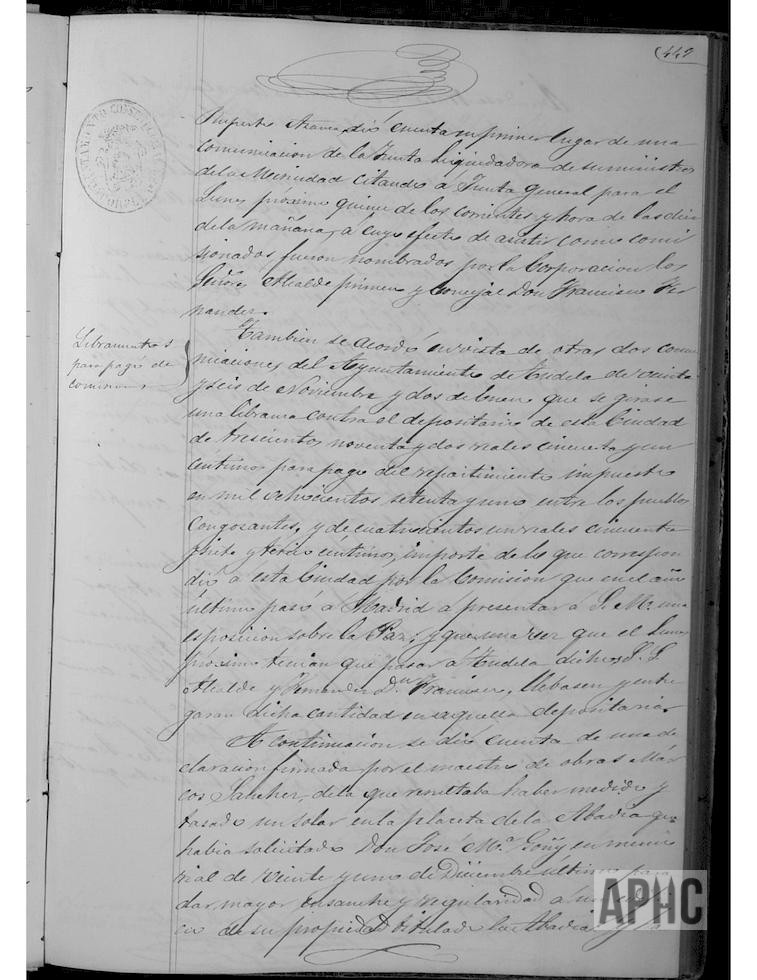 (449
dió cuenta en primer lugar de una
comunicacion de la Junta Liquidadora de suministros
de la Merindad citando á Junta general para el
Lunes próximo quince de los corrientes y hora de las diez
de la mañana, á cuyo efecto de asistir como comi
sionados fueron nombrados por la Corporacion los
Señores Alcalde primero y Concejal Don Francisco Fer
nandez.
Libramientos
para pago de
comision
Tambien se acordó en vista de otras dos comu
nicaciones del Ayuntamiento de Tudela de veinte
y seis de Noviembre y dos de Enero que se girase
una libranza contra el depositario de esta Ciudad
de trescientos noventa y dos reales cincuenta y un
centimos para pago del repartimiento impuesto
en mil ochocientos setenta y uno entre los pueblos
congozantes, y de cuatrocientos un reales cincuenta
y siete y tercio céntimos, importe de lo que correspon
dió á esta Ciudad por la Comision que en el año
último pasó á Madrid á presentar á S. M. una
esposicion sobre la Paz; y que una vez que el Lunes
próximo tenian que pasar á Tudela dichos S. S.
Alcalde y Fernandez Dn. Francisco, llebasen y entre
garan dicha cantidad en aquella depositaria.
A continuacion se dió cuenta de una de
claracion firmada por el maestro de obras Már
cos Sanchez, de la que resultaba haber medido y
tasado un solar en la placeta de la Abadia que
habia solicitado Don José M.ª Goñy en memo
rial de veinte y uno de Diciembre último para
dar mayor ensanche y regularidad á un edifi
cio de su propiedad titulado la Abadia y
APHC